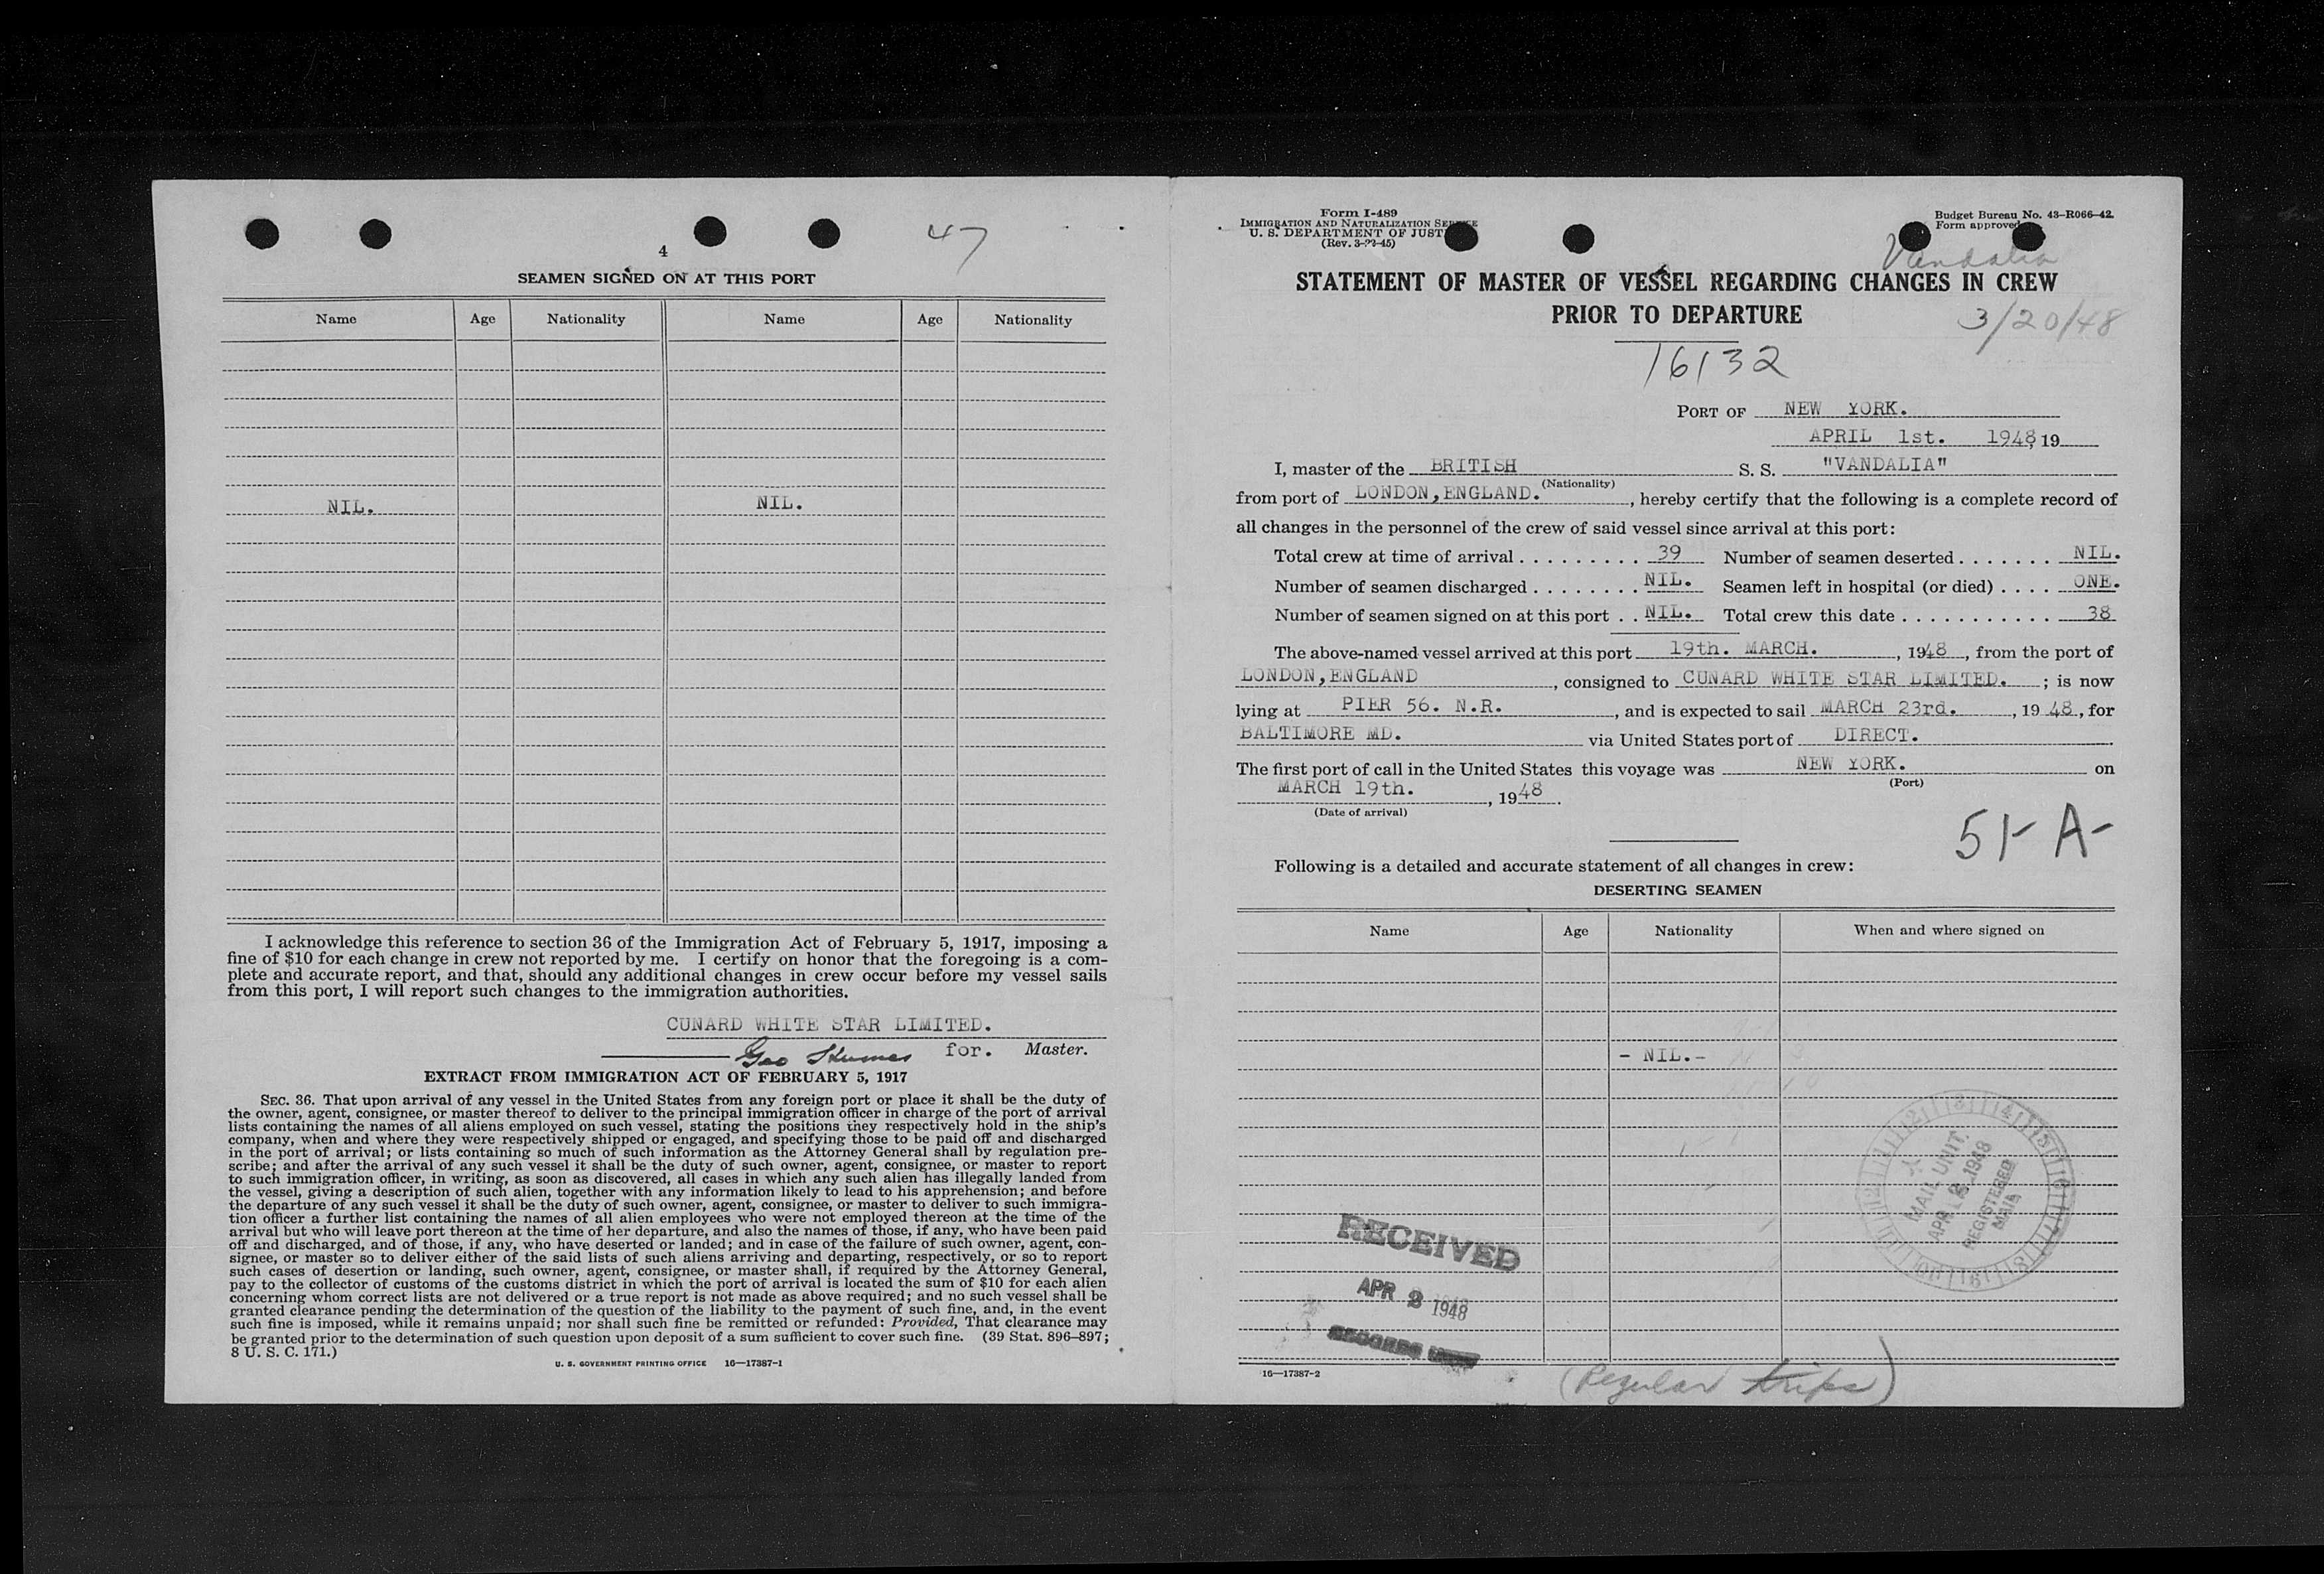 4
47
SEAMEN SIGNED ON AT THIS PORT
Name Age Nationality Name Age Nationality
NIL. NIL.
I acknowledge this reference to section 36 of the Immigration Act of February 5, 1917, imposing a
fine of $10 for each change in crew not reported by me. I certify on honor that the foregoing is a com-
plete and accurate report, and that, should any additional changes in crew occur before my vessel sails
from this port, I will report such changes to the immigration authorities.
CUNARD WHITE STAR LIMITED.
Geo for. Master.
EXTRACT FROM IMMIGRATION ACT OF FEBRUARY 5, 1917
SEC. 36. That upon arrival of any vessel in the United States from any foreign port or place it shall be the duty of
the owner, agent, consignee, or master thereof to deliver to the principal immigration officer in charge of the port of arrival
lists containing the names of all aliens employed on such vessel, stating the positions they respectively hold in the ship's
company, when and where they were respectively shipped or engaged, and specifying those to be paid off and discharged
in the port of arrival; or lists containing so much of such information as the Attorney General shall by regulation pre-
scribe; and after the arrival of any such vessel it shall be the duty of such owner, agent, consignee, or master to report
to such immigration officer, in writing, as soon as discovered, all cases in which any such alien has illegally landed from
the vessel, giving a description of such alien, together with any information likely to lead to his apprehension; and before
the departure of any such vessel it shall be the duty of such owner, agent, consignee, or master to deliver to such immigra-
tion officer a further list containing the names of all alien employees who were not employed thereon at the time of the
arrival but who will leave port thereon at the time of her departure, and also the names of those, if any, who have been paid
off and discharged, and of those, if any, who have deserted or landed; and in case of the failure of such owner, agent, con-
signee, or master so to deliver either of the said lists of such aliens arriving and departing, respectively, or so to report
such cases of desertion or landing, such owner, agent, consignee, or master shall, if required by the Attorney General,
pay to the collector of customs of the customs district in which the port of arrival is located the sum of $10 for each alien
concerning whom correct lists are not delivered or a true report is not made as above required; and no such vessel shall be
granted clearance pending the determination of the question of the liability to the payment of such fine, and, in the event
such fine is imposed, while it remains unpaid; nor shall such fine be remitted or refunded: Provided, That clearance may
be granted prior to the determination of such question upon deposit of a sum sufficient to cover such fine. (39 Stat. 896–897;
8 U. S. C. 171.)
U. S. GOVERNMENT PRINTING OFFICE 16—17387-1
Form I-489
IMMIGRATION AND NATURALIZATION SERVICE
U. S. DEPARTMENT OF JUST
(Rev. 3-22-45)
Budget Bureau No. 43-R066-42.
Form approved
Vandalia
STATEMENT OF MASTER OF VESSEL REGARDING CHANGES IN CREW
PRIOR TO DEPARTURE
3/20/48
16132
PORT OF NEW YORK.
APRIL 1st. 1948, 19
I, master of the BRITISH S. S. "VANDALIA"
(Nationality)
from port of LONDON, ENGLAND. , hereby certify that the following is a complete record of
all changes in the personnel of the crew of said vessel since arrival at this port:
Total crew at time of arrival . . . . . . . . . . 39 Number of seamen deserted . . . . . . . NIL.
Number of seamen discharged . . . . . . . . NIL. Seamen left in hospital (or died) . . . . ONE.
Number of seamen signed on at this port . . NIL. Total crew this date . . . . . . . . . . . 38
The above-named vessel arrived at this port 19th. MARCH. , 1948 , from the port of
LONDON, ENGLAND , consigned to CUNARD WHITE STAR LIMITED. ; is now
lying at PIER 56. N.R. , and is expected to sail MARCH 23rd. , 19 48 , for
BALTIMORE MD. via United States port of DIRECT.
The first port of call in the United States this voyage was NEW YORK. on
(Port)
MARCH 19th. , 1948 .
(Date of arrival)
51- A-
Following is a detailed and accurate statement of all changes in crew:
DESERTING SEAMEN
Name Age Nationality When and where signed on
- NIL.-
MAIL UNIT.
APR 2 1948
REGISTERED
MAIL
RECEIVED
APR 2 1948
RECORDS UNIT
16—17387-2
(Regular trips)